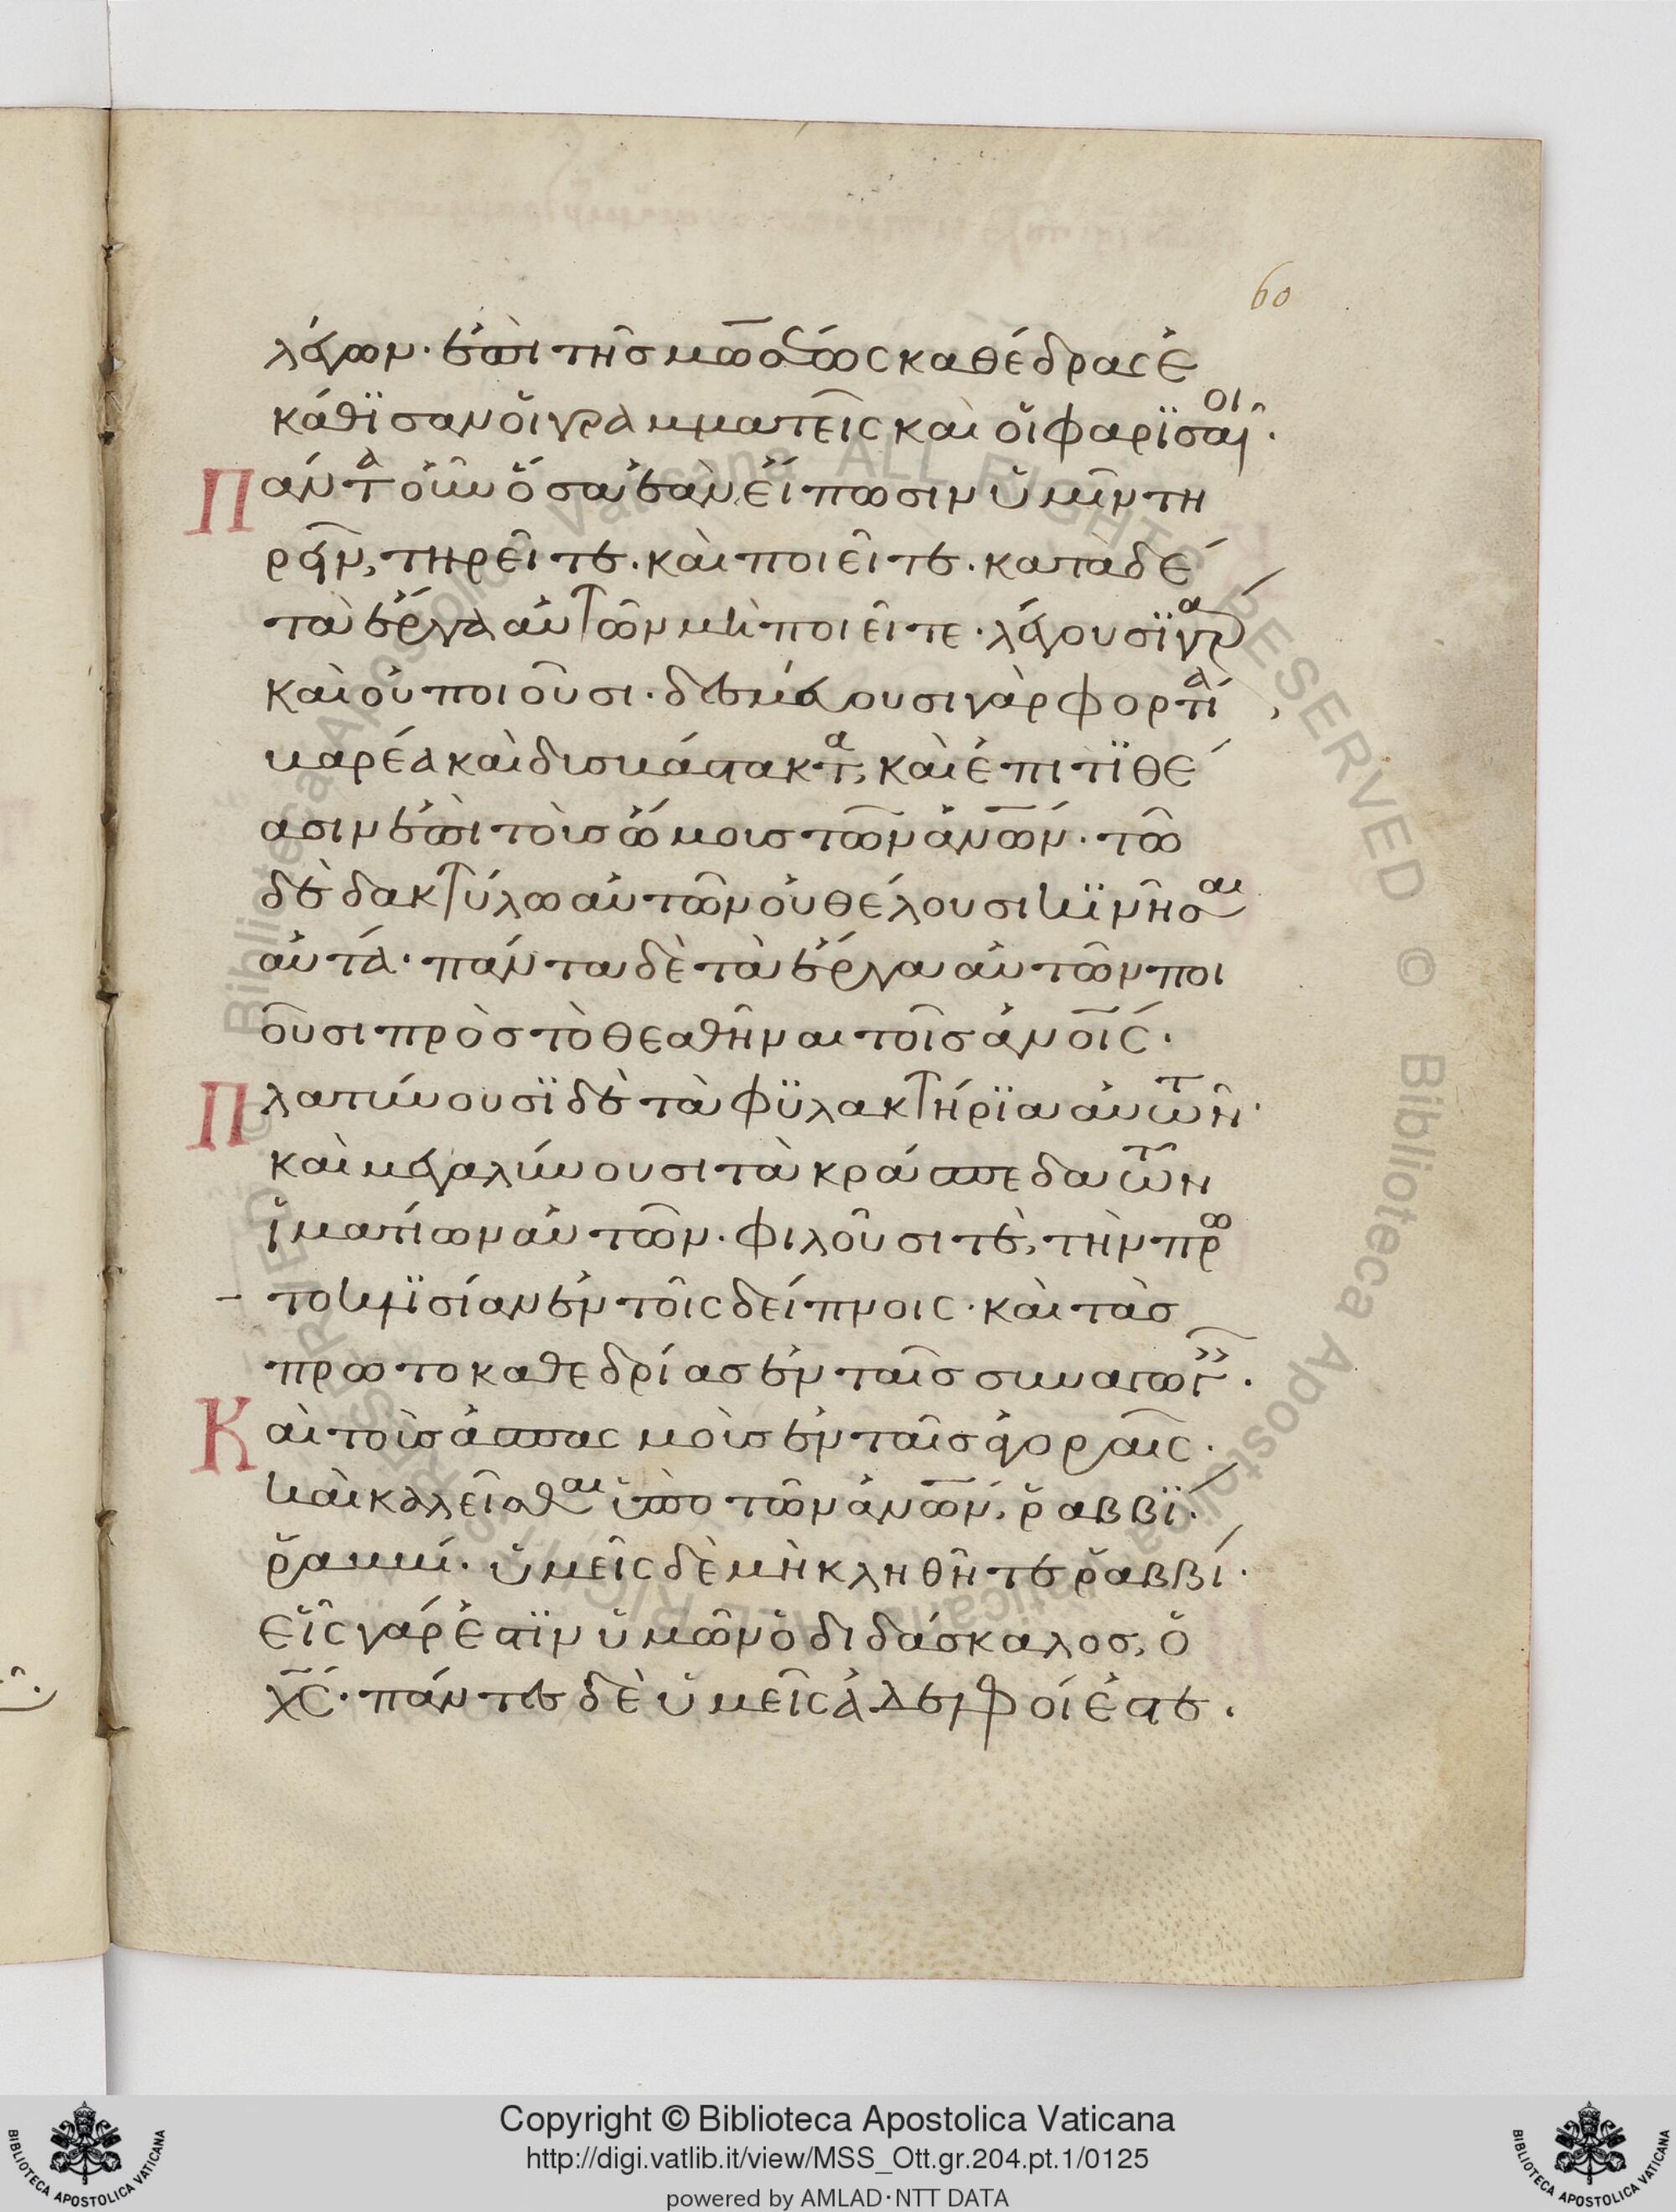 60
λέγων· ἐπὶ τῆς μωσέως καθέδρας ἐ
κάθϊσαν οἱ γραμματεῖς καὶ οἱ φαρϊσαῖοι·
Πάντα οὖν ὅσα ἐὰν εἴπωσιν ὑμῖν τη
ρεῖν, τηρεῖτε. καὶ ποιεῖτε. κατὰ δέ
τὰ ἔργα αὐτῶν μὴ ποιεῖτε· λέγουσϊ γὰρ
καὶ οὐ ποιοῦσι· δεσμεύουσι γὰρ φορτία
βαρέα καὶ δυσβάστακτα, καὶ ἐπιτϊθέ
ασιν ἐπὶ τοὺς ὤμους τῶν ἀνων· τῶ
δὲ δακτύλω αὐτῶν οὐ θέλουσι κϊνῆσαι
αὐτά· πάντα δὲ τὰ ἔργα αὐτῶν ποι
οῦσι πρὸς τὸ θεαθῆναι τοῖς ἀνοις·
Πλατύνουσϊ δὲ τὰ φϋλακτήρϊα αὐτῶν·
καὶ μεγαλύνουσι τὰ κράσπεδα τῶν
ἱματίων αὐτῶν· φιλοῦσι τὲ, τὴν πρω
τοκλϊσίαν ἐν τοῖς δείπνοις· καὶ τὰς
πρωτοκαθεδρίας ἐν ταῖς συναγωγ·
Καὶ τοὺς ἀσπασμοὺς ἐν ταῖς ἀγοραῖς·
καὶ καλεῖσθαι ὑπὸ τῶν ἀνων, ῥαββϊ·
ῥαββί· ὑμεῖς δὲ μὴ κληθῆτε ῥαββί·
εἷς γάρ ἐστϊν ὑμῶν ὁ διδάσκαλος, ὁ
χς· πάντες δὲ ὑμεῖς ἀδελφοί ἐστε.
Copyright © Biblioteca Apostolica Vaticana
http://digi.vatlib.it/view/MSS_Ott.gr.204.pt.1/0125
powered by AMLAD·NTT DATA